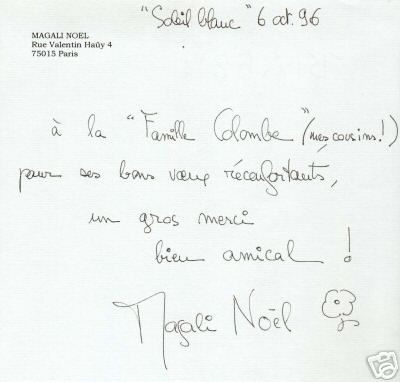 "Soleil blanc" 6 oct. 96
MAGALI NOEL
Rue Valentin Haüy 4
75015 Paris
à la "Famille Colombe" (mes cousins!)
pour ses bons vœux réconfortants,
un gros merci
bien amical !
Magali Noël